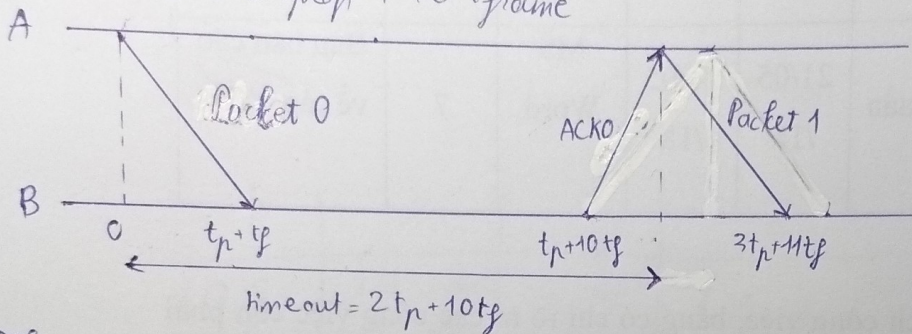 A
Packet 0
ACK0
Packet 1
B
0
tp+tf
tp+10tf
3tp+11tf
timeout = 2tp+10tf